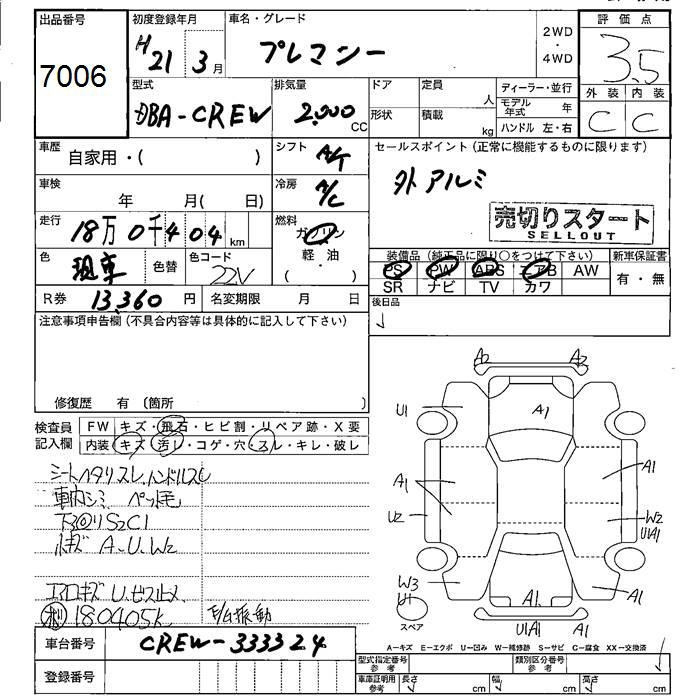 出品番号
7006
初度登録年月
H21 3月
車名・グレード
プレマシー
2WD
・
4WD
評価点
3.5
外装 内装
C C
型式
DBA-CREW
排気量
2,000
CC
ドア
形状
定員
人
積載
kg
ディーラー・並行
モデル年式 年
ハンドル 左・右
車歴
自家用・( )
シフト
A/T
セールスポイント(正常に機能するものに限ります)
外アルミ
売切りスタート
SELLOUT
車検
年 月( 日)
冷房
A/C
走行
18万0千404km
燃料
ガソリン
・
軽油
( )
色
現車
色替
色コード
22V
装備品(純正品に限り○をつけて下さい)
PS PW ABS エアB AW
SR ナビ TV カワ
新車保証書
有・無
R券 13,360円
名変期限 月 日
後日品
注意事項申告欄(不具合内容等は具体的に記入して下さい)
修復歴 有(箇所 )
検査員
記入欄
FW キズ・飛石・ヒビ割・リペア跡・X要
内装 キズ・汚レ・コゲ・穴・スレ・キレ・破レ
シートヘタリスレ,ハンドルスレ
車内シミ ペット毛
下回りS2C1
小キズ A.U.W2
エアロキズ U.ビス止メ
180405K E/G振動
車台番号 CREW-333324
登録番号
A2 A2
U1 A1
A1 A1
U2 W2
U1A1
W3
U1
A1 A1
U1A1 A1
スペア
A-キズ E-エクボ U-凹み W-補修跡 S-サビ C-腐食 XX-交換済
型式指定番号
参考
類別区分番号
参考
車庫証明用
参考
長さ cm 幅 cm 高さ cm